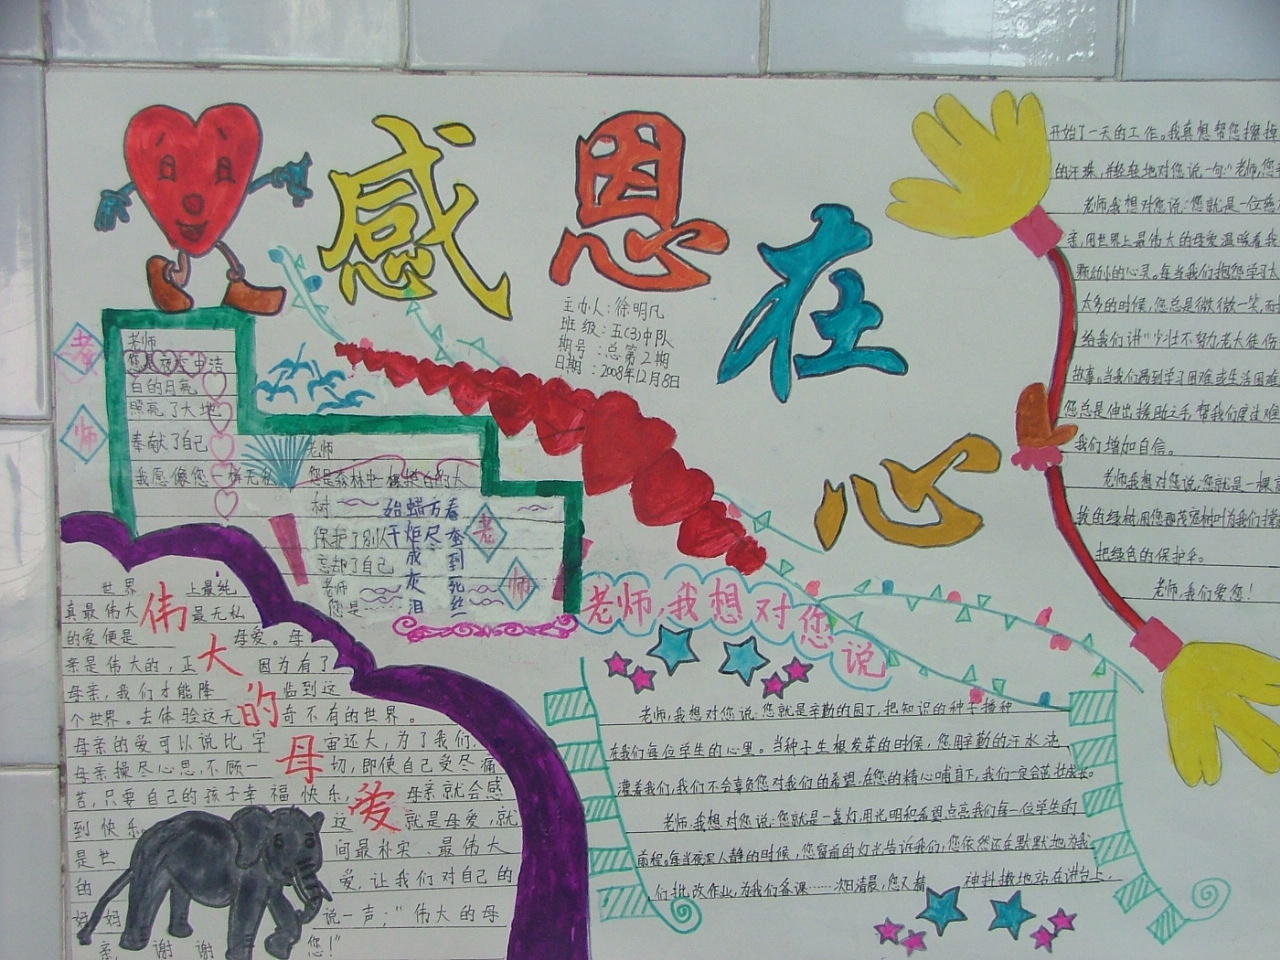 感恩在心
主办人：徐明凡
班级：五(3)中队
期号：总第2期
日期：2008年12月8日
老师
老师
您是夜空中洁
白的月亮
照亮了大地
奉献了自己
我愿像您一样无私
老师
您是森林中一棵挺的大
树
保护了别人
忘却了自己
老师
您是
春蚕到死丝方尽
蜡炬成灰泪始干
老师
伟大的母爱
世界上最纯
真最伟大最无私
的爱便是母爱。母
亲是伟大的，正因为有了
母亲，我们才能降临到这
个世界。去体验这无奇不有的世界。
母亲的爱可以说比宇宙还大，为了我们，
母亲操尽心思，不顾一切，即使自己受尽痛
苦，只要自己的孩子幸福快乐，母亲就会感
到快乐。这就是母爱，就
是世间最朴实、最伟大
的爱，让我们对自己的
妈妈说一声：“伟大的母
亲，谢谢您！”
老师，我想对您说
老师，我想对您说：您就是辛勤的园丁，把知识的种子播种
在我们每位学生的心里。当种子生根发芽的时候，您用辛勤的汗水浇
灌着我们，我们不会辜负您对我们的希望，在您的精心哺育下，我们一定会茁壮成长。
老师，我想对您说：您就是一盏灯，用光明和希望点亮我们每一位学生的
前程。每当夜深人静的时候，您窗前的灯光告诉我们，您依然还在默默地为我
们批改作业，为我们备课……次日清晨，您又精神抖擞地站在讲台上，
开始了一天的工作。我真想帮您擦掉
的汗珠，并轻轻地对您说一句：“老师，您
老师，我想对您说：您就是一位慈
亲，用世界上最伟大的母爱温暖着我
颗幼小的心灵。每当我们抱怨学习太
太多的时候，您总是微微一笑，而
给我们讲“少壮不努力，老大徒伤
故事。当我们遇到学习困难或生活困难
您总是伸出援助之手，帮我们度过难
我们增加自信。
老师，我想对您说：您就是一棵高
我的绿树，用您那茂密树叶为我们撑
把绿色的保护伞。
老师，我们爱您！